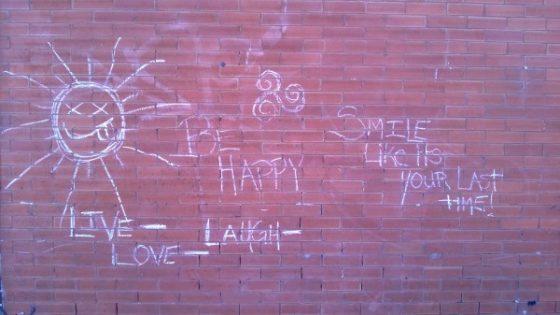 BE
HAPPY
SMILE
LIKE ITS
YOUR LAST
TIME!
LIVE - LAUGH -
LOVE -